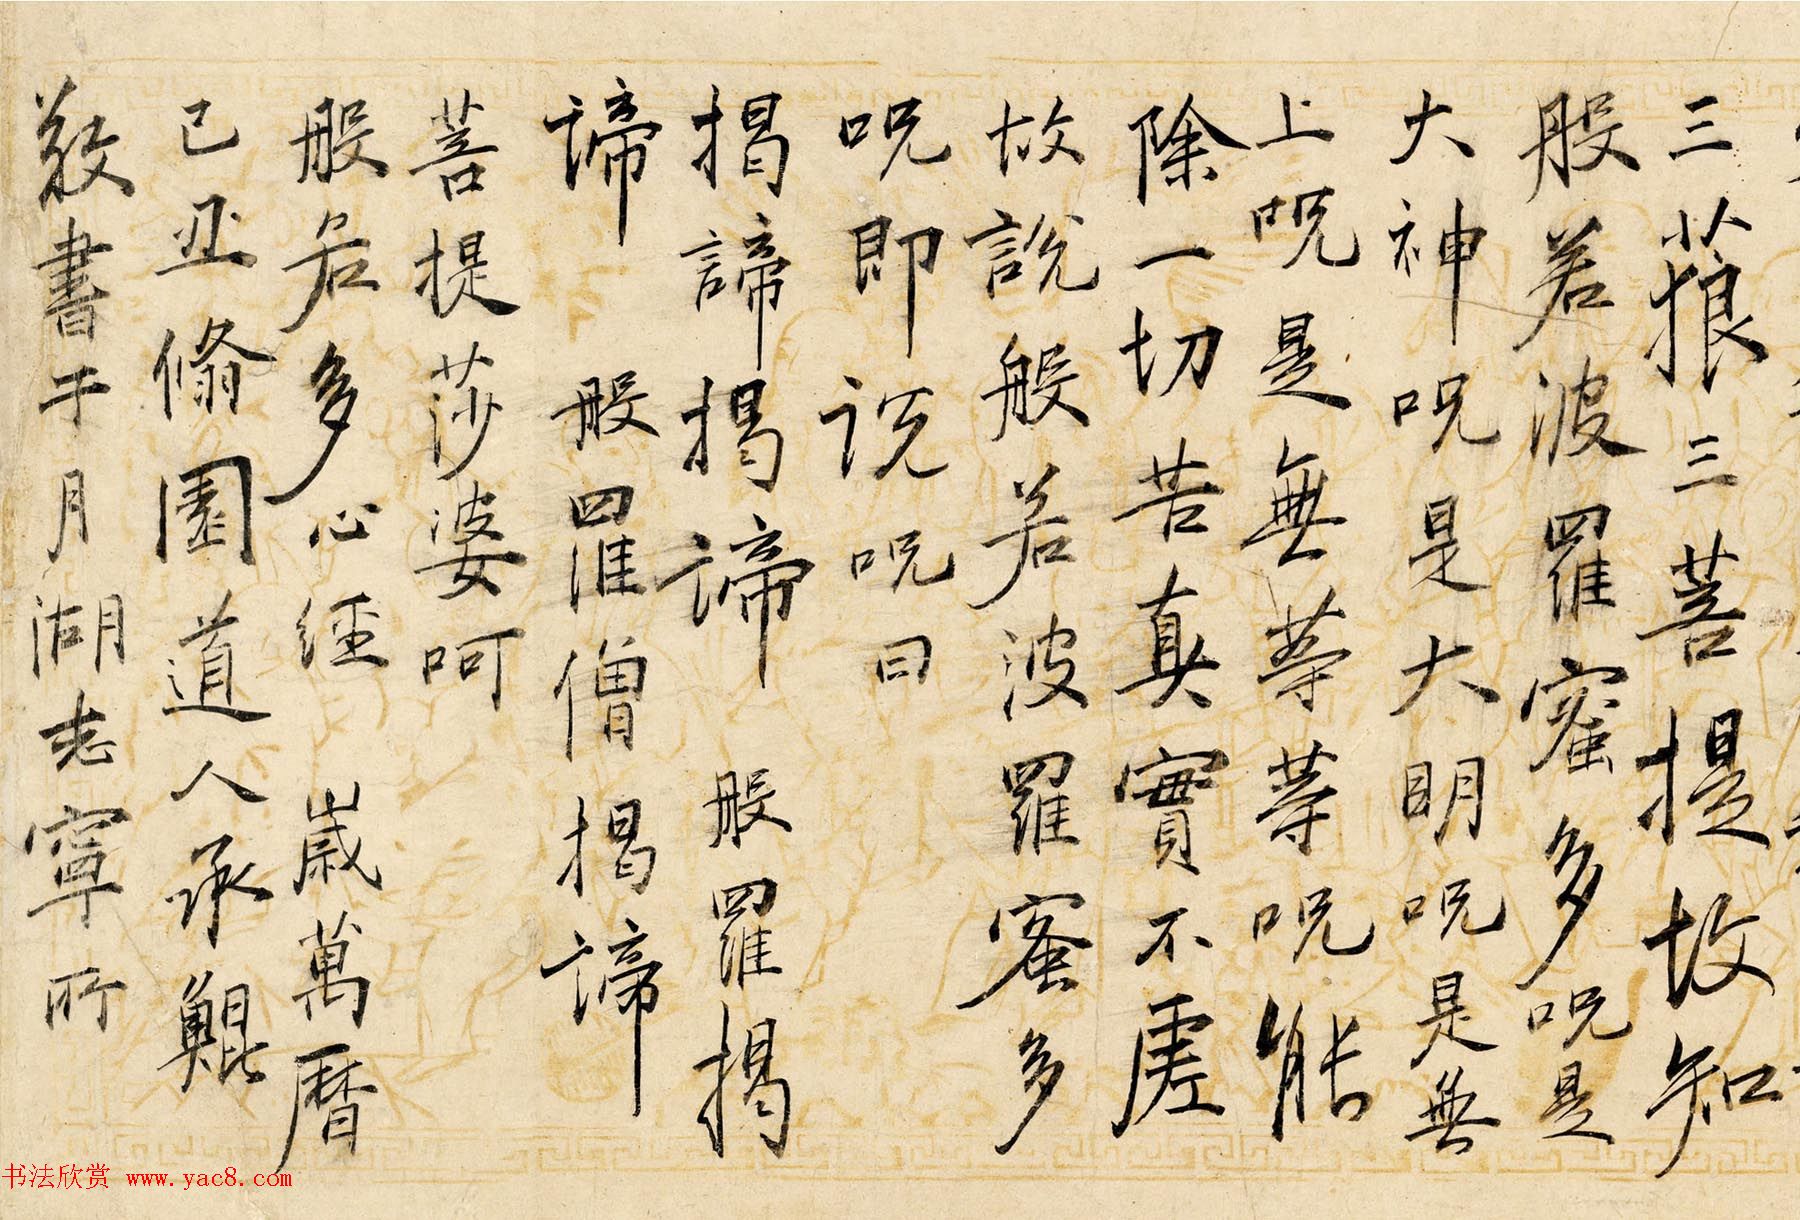 三藐三菩提故知
般若波羅蜜多呪是
大神呪是大明呪是無
上呪是無等等呪能
除一切苦真實不虛
故說般若波羅蜜多
呪即说呪曰
揭諦揭諦 般羅揭
諦 般羅僧揭諦
菩提莎婆呵
般若多心經 歲萬曆
己丑翛園道人承鯤
敬書于月湖志寧所
书法欣赏 www.yac8.com